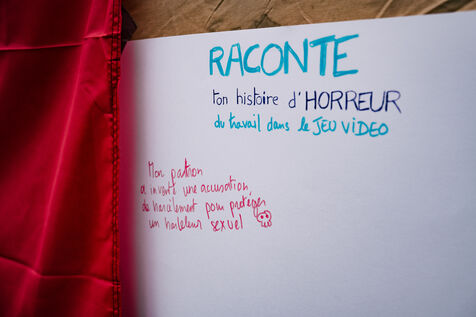 RACONTE
ton histoire d'HORREUR
du travail dans le JEU VIDEO
Mon patron
a inventé une accusation
de harcèlement pour protéger
un harceleur sexuel